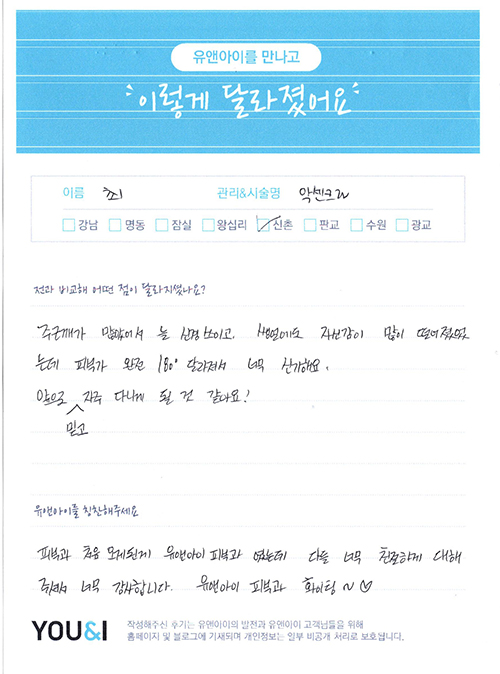 유앤아이를 만나고
이렇게 달라졌어요
이름 최 관리&시술명 악센트
강남 명동 잠실 왕십리 신촌 판교 수원 광교
전과 비교해 어떤 점이 달라지셨나요?
주근깨가 많았어서 늘 신경쓰이고. 생얼에도 자신감이 많이 떨어졌었
는데 피부가 완전 180° 달라져서 너무 신기해요.
앞으로 믿고 자주 다니게 될 것 같아요!
유앤아이를 칭찬해주세요
피부과 처음 오게된게 유앤아이 피부과 였는데 다들 너무 친절하게 대해
주셔서 너무 감사합니다. 유앤아이 피부과 화이팅~♡
YOU&I 작성해주신 후기는 유앤아이의 발전과 유앤아이 고객님들을 위해
홈페이지 및 블로그에 기재되며 개인정보는 일부 비공개 처리로 보호됩니다.